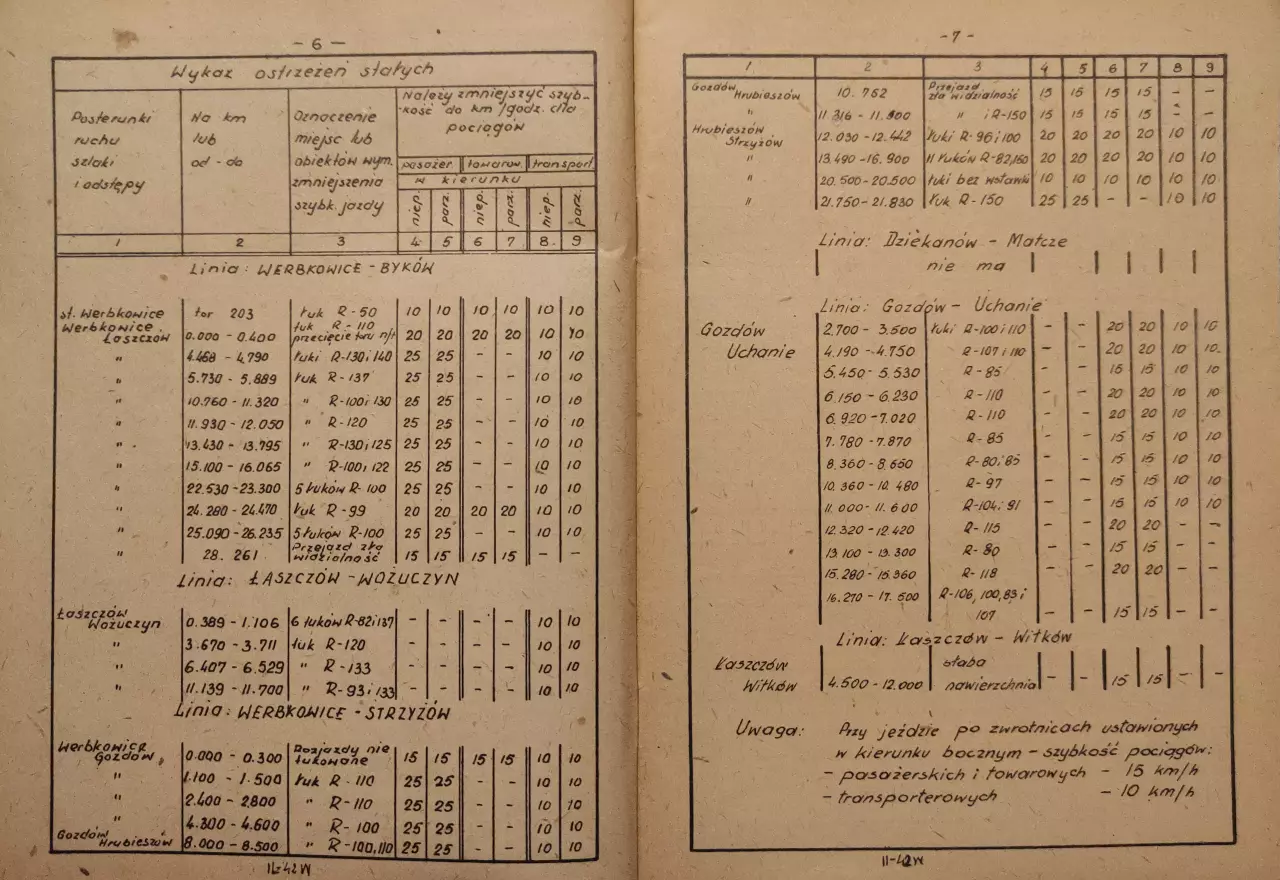 - 6 -
Wykaz ostrzeżeń stałych
Posterunki ruchu szlaki i odstępy
Na km lub od - do
Oznaczenie miejsc lub obiektów wym. zmniejszenia szybk. jazdy
Należy zmniejszyć szybkość do km /godz. dla pociągów
pasażer. towarow. transport.
w kierunku
niep. parz. niep. parz. niep. parz.
1 2 3 4 5 6 7 8 9
Linia: WERBKOWICE - BYKÓW
st. Werbkowice tor 203 łuk R-50 10 10 10 10 10 10
Werbkowice Łaszczów 0.000 - 0.400 łuk R-110 przecięcie toru n/t 20 20 20 20 10 10
" 4.468 - 4.790 łuki R-130 i 140 25 25 - - 10 10
" 5.730 - 5.889 łuk R-137 25 25 - - 10 10
" 10.760 - 11.320 " R-100 i 130 25 25 - - 10 10
" 11.930 - 12.050 " R-120 25 25 - - 10 10
" 13.430 - 13.795 " R-130 i 125 25 25 - - 10 10
" 15.100 - 16.065 " R-100 i 122 25 25 - - 10 10
" 22.530 - 23.300 5 łuków R-100 25 25 - - 10 10
" 24.280 - 24.470 łuk R-99 20 20 20 20 10 10
" 25.090 - 26.235 5 łuków R-100 25 25 - - 10 10
" 28.261 Przejazd zła widzialność 15 15 15 15 - -
Linia: ŁASZCZÓW - WOŻUCZYN
Łaszczów Wożuczyn 0.389 - 1.106 6 łuków R-82 i 137 - - - - 10 10
" 3.670 - 3.711 łuk R-120 - - - - 10 10
" 6.407 - 6.529 " R-133 - - - - 10 10
" 11.139 - 11.700 " R-93 i 133 - - - - 10 10
Linia: WERBKOWICE - STRZYŻÓW
Werbkowice Gozdów 0.000 - 0.300 Rozjazdy nie łukowane 15 15 15 15 10 10
" 1.100 - 1.500 łuk R-110 25 25 - - 10 10
" 2.400 - 2.800 " R-110 25 25 - - 10 10
" 4.300 - 4.600 " R-100 25 25 - - 10 10
Gozdów Hrubieszów 8.000 - 8.500 " R-100,110 25 25 - - 10 10
II-42W
- 7 -
1 2 3 4 5 6 7 8 9
Gozdów Hrubieszów 10.762 Przejazd zła widzialność 15 15 15 15 - -
" 11.316 - 11.800 " i R-150 15 15 15 15 - -
Hrubieszów Strzyżów 12.030 - 12.442 łuki R-96 i 100 20 20 20 20 10 10
" 13.490 - 16.900 11 łuków R-82,150 20 20 20 20 10 10
" 20.500 - 20.500 łuki bez wstawki 10 10 10 10 10 10
" 21.750 - 21.830 łuk R-150 25 25 - - 10 10
Linia: Dziekanów - Matcze
nie ma
Linia: Gozdów - Uchanie
Gozdów Uchanie 2.700 - 3.500 łuki R-100 i 110 - - 20 20 10 10
4.190 - 4.750 R-107 i 110 - - 20 20 10 10
5.450 - 5.530 R-85 - - 15 15 10 10
6.150 - 6.230 R-110 - - 20 20 10 10
6.920 - 7.020 R-110 - - 20 20 10 10
7.780 - 7.870 R-85 - - 15 15 10 10
8.360 - 8.650 R-80 i 85 - - 15 15 10 10
10.360 - 10.480 R-97 - - 15 15 10 10
11.000 - 11.600 R-104 i 91 - - 15 15 10 10
12.320 - 12.420 R-115 - - 20 20 - -
13.100 - 13.300 R-80 - - 15 15 - -
15.280 - 15.360 R-118 - - 20 20 - -
16.270 - 17.500 R-106, 100, 83 i 107 - - 15 15 - -
Linia: Łaszczów - Witków
Łaszczów Witków 4.500 - 12.000 słaba nawierzchnia - - 15 15 - -
Uwaga: Przy jeździe po zwrotnicach ustawionych
w kierunku bocznym - szybkość pociągów:
- pasażerskich i towarowych - 15 km/h
- transporterowych - 10 km/h
II-42W